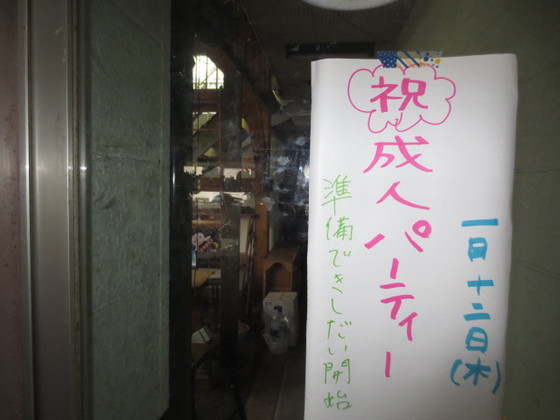 一日十二日(木)
祝成人パーティー
準備できしだい開始